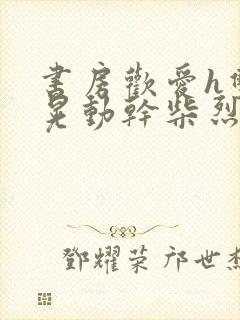 書房歡愛h
晃動幹柴烈
鄧耀荣 邝世杰